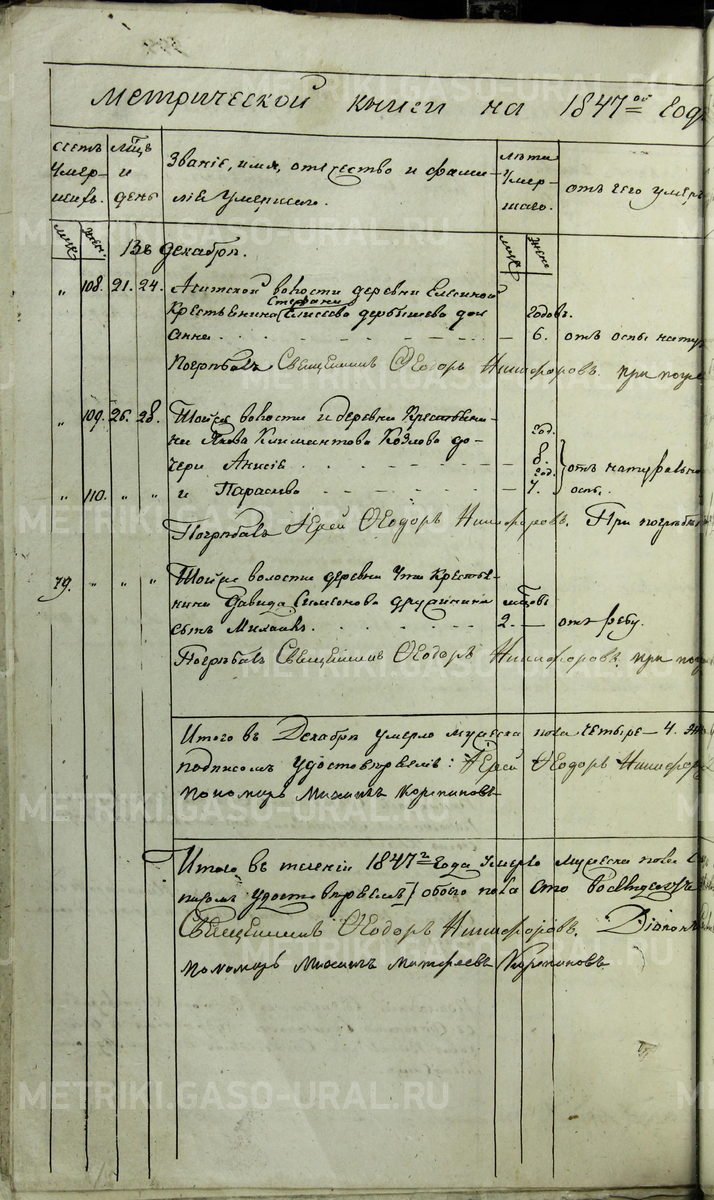 метрической книги на 1847ой год
счетъ умер- шихъ.
мцъ и день
Званіе, имя, отчество и фами-
ліе умершаго.
лѣта умер- шаго.
отъ чего умеръ
муж. жен.
муж. жен.
Въ Декабрѣ.
„ 108. 21. 24. волости деревни
Крестьянина Стефана Елисѣева дочь
годовъ.
Анна — 6. отъ оспы нату
Погребалъ Священникъ Ѳеодоръ Никифоровъ. при погре
„ 109. 26. 28. волости и деревни Крестьяни-
на Якова Климантова Козлова до-
год.
чери Анисія — 8. отъ натурально
год.
„ 110. „ „ и Параскева — 7. оспы.
Погребалъ Іерей Ѳеодоръ Никифоровъ. При погребе
79. „ „ „ волости деревни Крестья-
нина Давида Симеонова
мцовъ
сынъ Михаилъ. 2. — отъ реву.
Погребалъ Священникъ Ѳеодоръ Никифоровъ. при пог
Итого въ Декабрѣ умерло мужеска пола четыре — 4.
подписомъ удостовѣряемъ: Іерей Ѳеодоръ Никифоров
пономарь Михаилъ Коряковъ
Итого въ теченіи 1847г года умерло мужеска пола
писомъ удостовѣряемъ обоего пола сто
Священникъ Ѳеодоръ Никифоровъ. Діаконъ
пономарь Михаилъ Матѳеевъ
METRIKI.GASO-URAL.RU